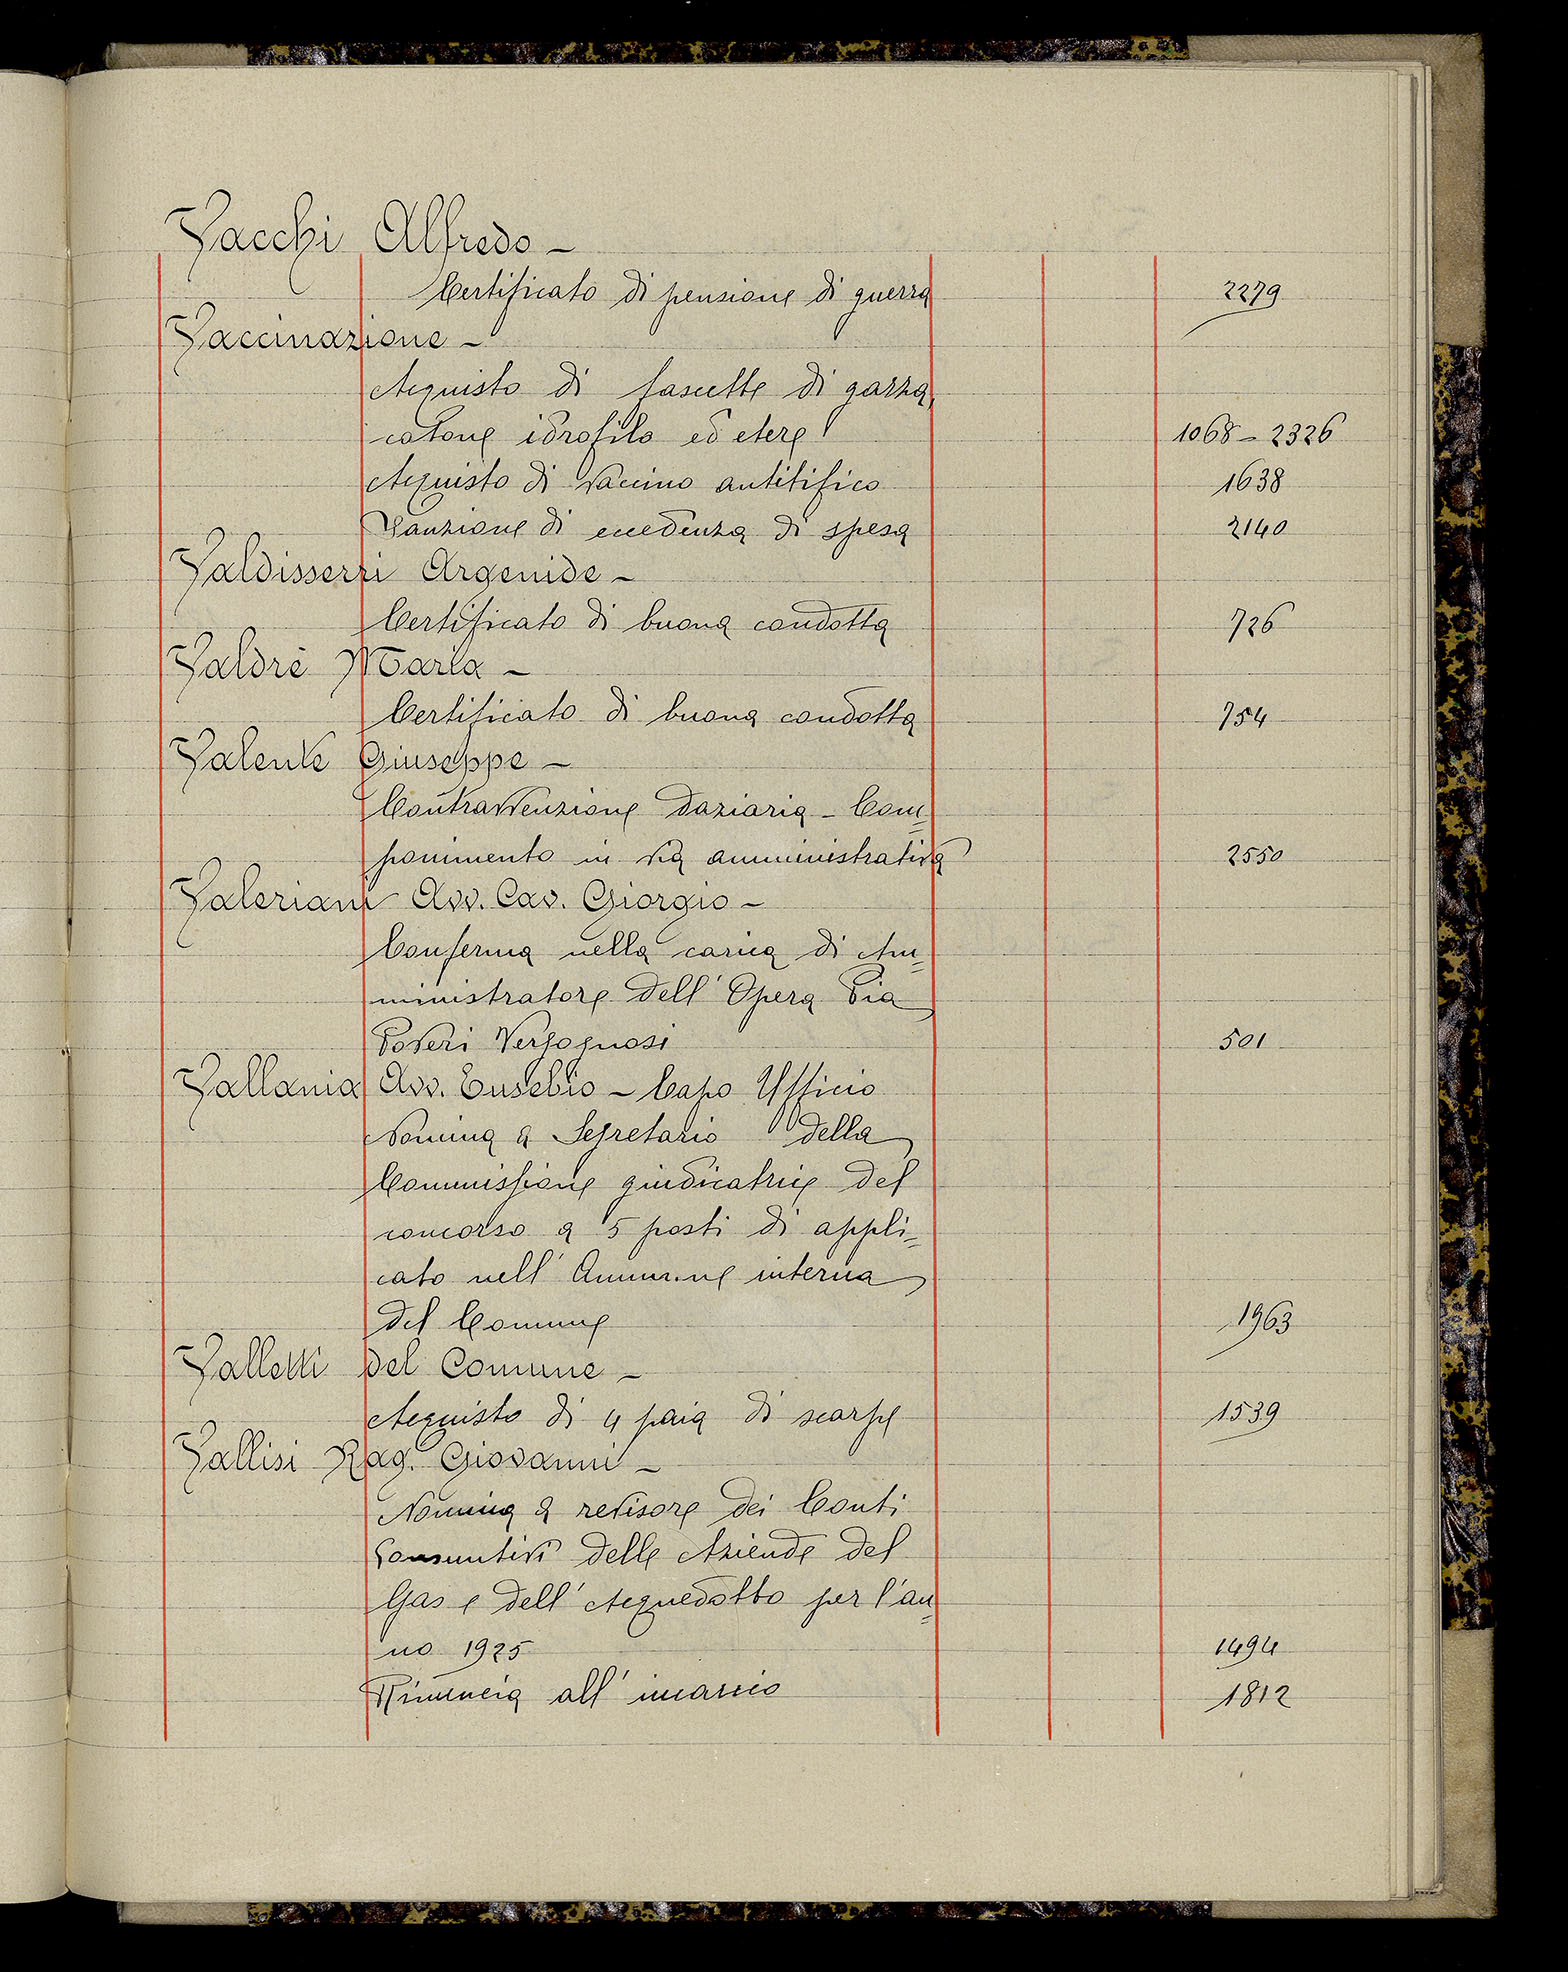 Vacchi Alfredo -
Certificato di pensione di guerra 2279
Vaccinazione -
Acquisto di fascette di garza,
cotone idrofilo ed etere 1068 - 2326
Acquisto di vaccino antitifico 1638
Sanzione di eccedenza di spesa 2140
Valdisserri Argenide -
Certificato di buona condotta 726
Valdrè Maria -
Certificato di buona condotta 754
Valente Giuseppe -
Contravvenzione daziaria - Com=
ponimento in via amministrativa 2550
Valeriani Avv. Cav. Giorgio -
Conferma nella carica di Am=
ministratore dell' Opera Pia
Poveri Vergognosi 501
Vallania Avv. Eusebio - Capo Ufficio
Nomina a Segretario della
Commissione giudicatrice del
concorso a 5 posti di appli=
cato nell' Amm.ne interna
del Comune 1963
Valletti del Comune -
Acquisto di 4 paia di scarpe 1539
Vallisi Rag. Giovanni -
Nomina a revisore dei Conti
Consuntivi delle Aziende del
Gas e dell' Acquedotto per l'an=
no 1925 1494
Rinuncia all' incarico 1812